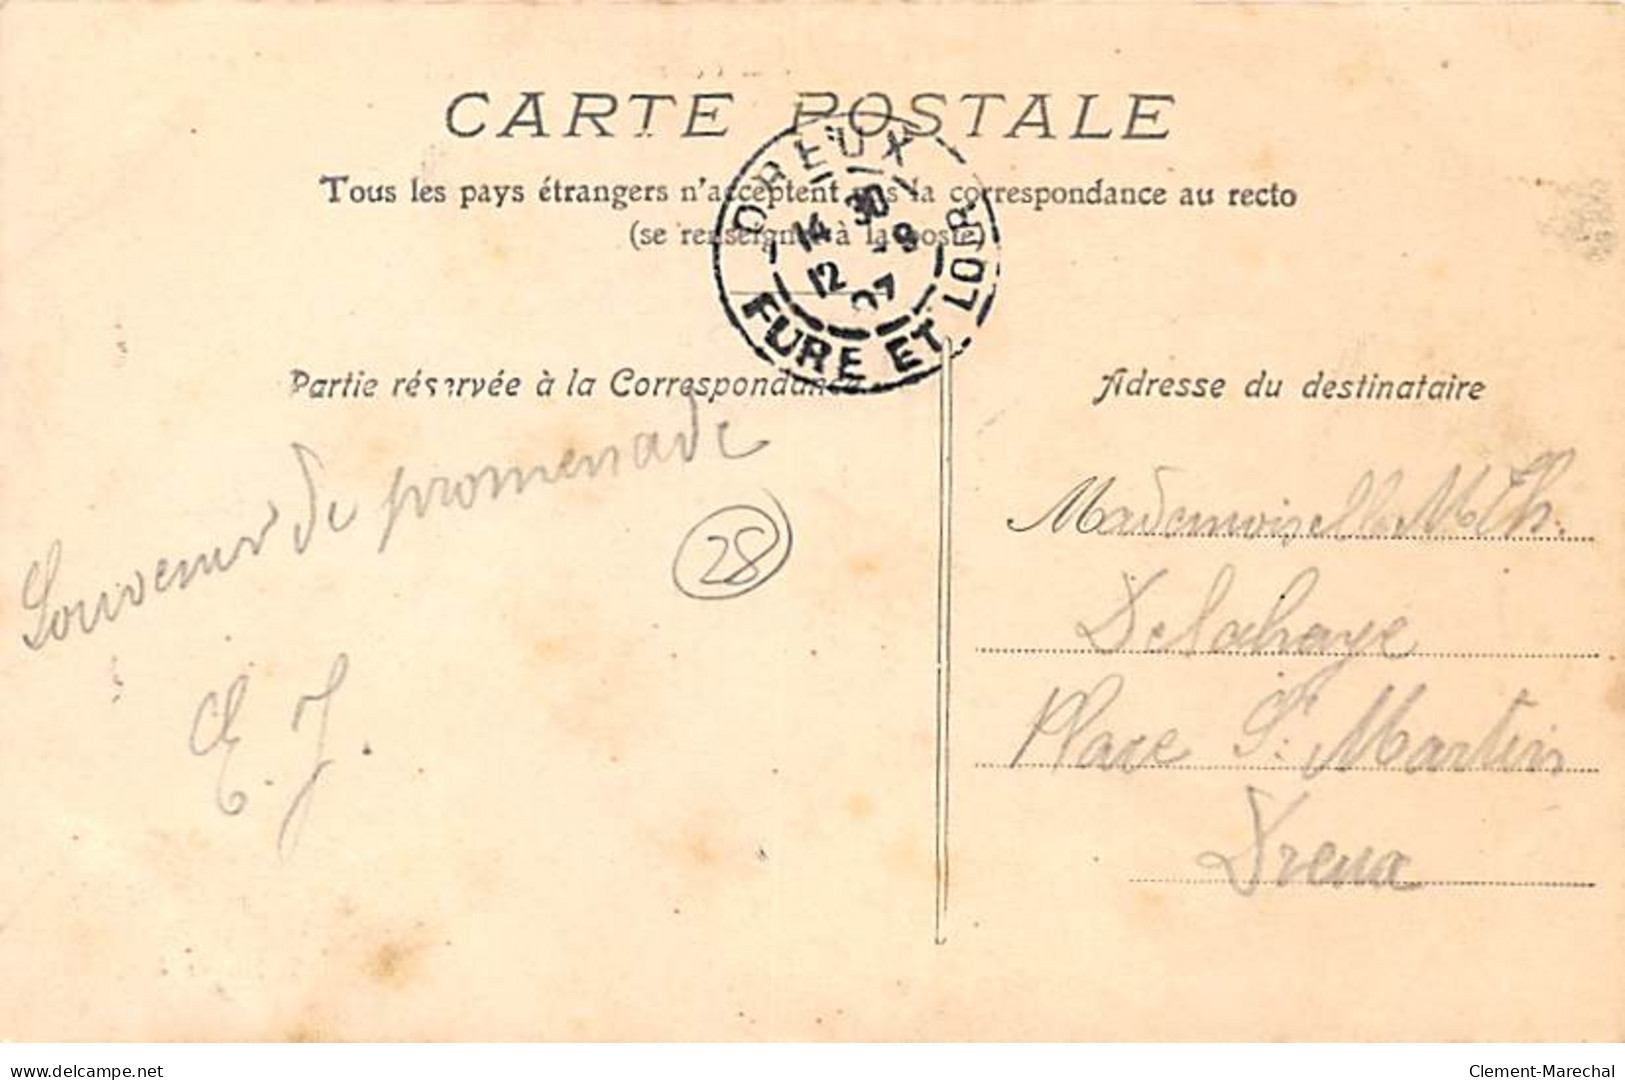 CARTE POSTALE
Tous les pays étrangers n'acceptent pas la correspondance au recto
(se renseigner à la poste)
DREUX
14 30
12 -9
07
EURE ET LOIR
Partie réservée à la Correspondance
Adresse du destinataire
Souvenir de promenade
E. J.
28
Mademoiselle M Th.
Delahaye
Place St Martin
Dreux
www.delcampe.net
Clement-Marechal